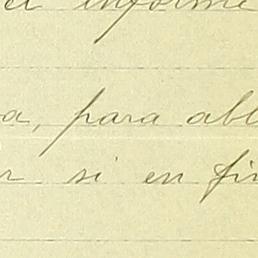 el informe
a, para abl
r si en fin